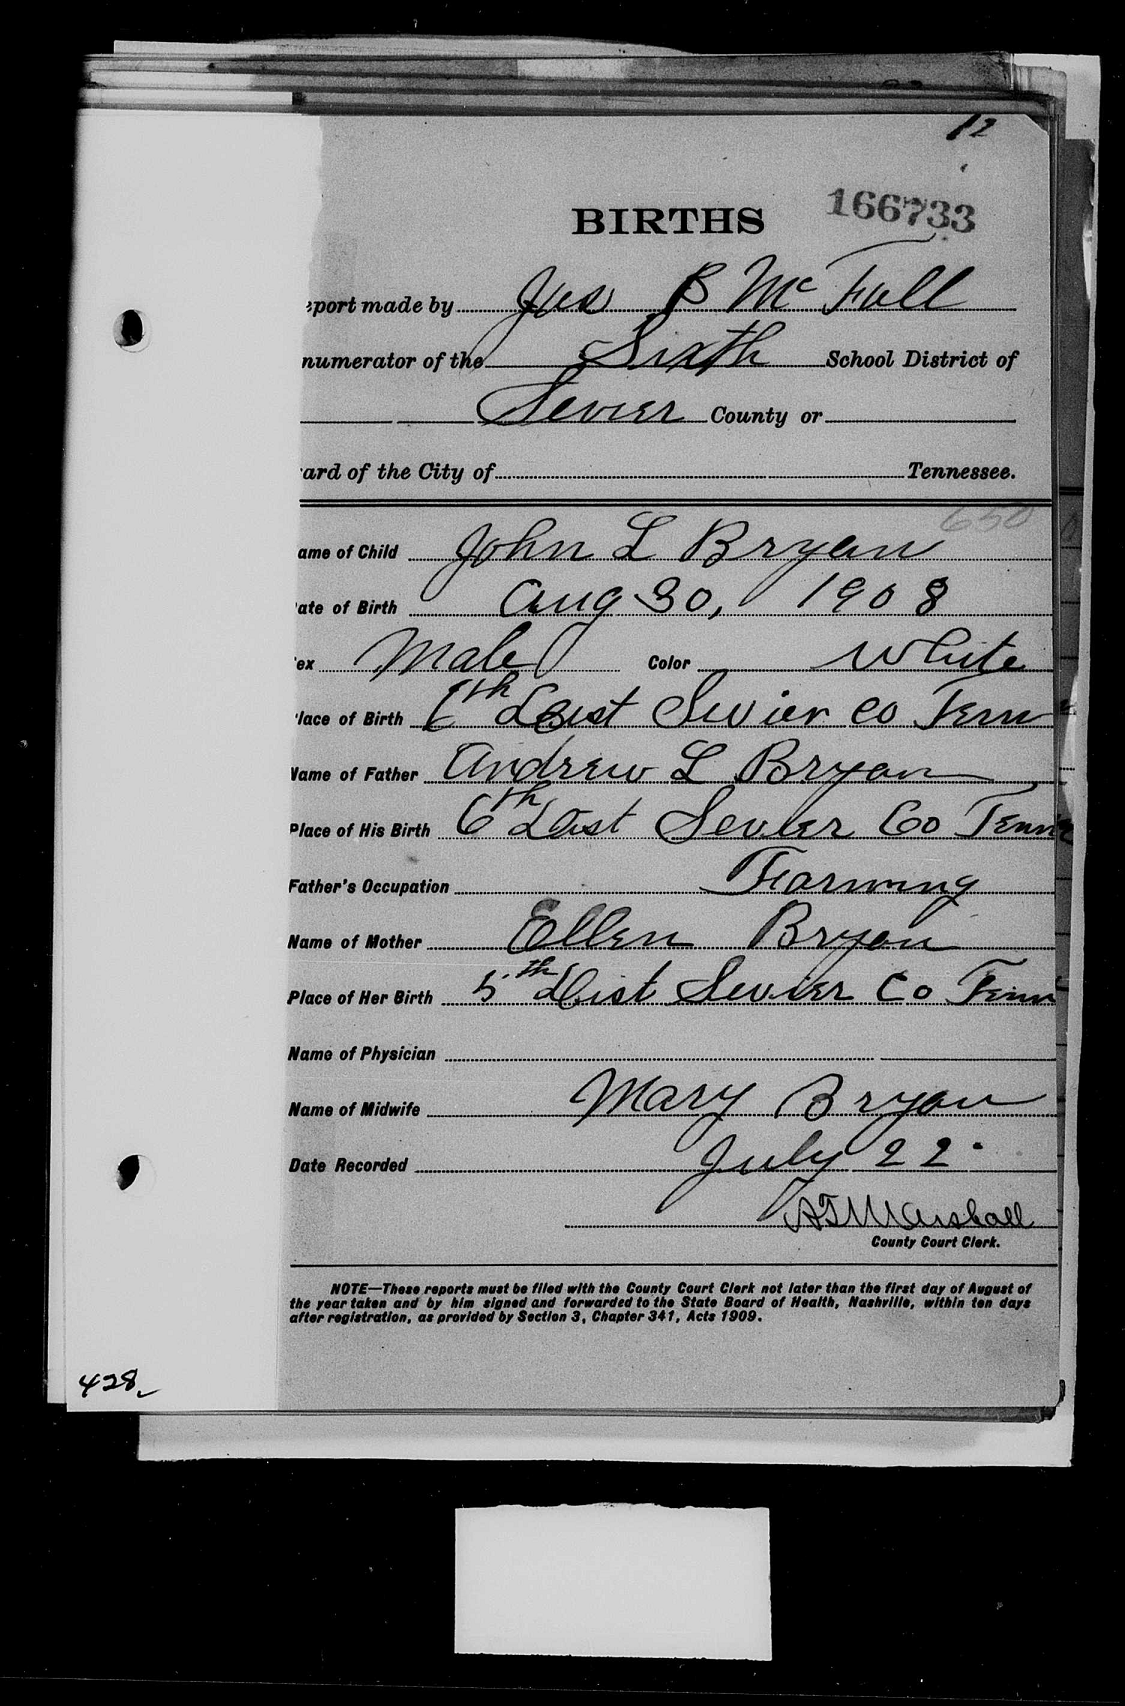 12
166733
BIRTHS
eport made by Jas B McFall
numerator of the Sixth School District of
Sevier County or
ard of the City of Tennessee.
650
ame of Child John L Bryan
ate of Birth Aug 30, 1908
ex Male Color White
lace of Birth 6th Dist Sevier Co Tenn
Name of Father Andrew L Bryan
Place of His Birth 6th Dist Sevier Co Tenn
Father's Occupation Farming
Name of Mother Ellen Bryan
Place of Her Birth 5th Dist Sevier Co Tenn
Name of Physician
Name of Midwife Mary Bryan
Date Recorded July 22
A T Marshall
County Court Clerk.
NOTE—These reports must be filed with the County Court Clerk not later than the first day of August of
the year taken and by him signed and forwarded to the State Board of Health, Nashville, within ten days
after registration, as provided by Section 3, Chapter 341, Acts 1909.
428